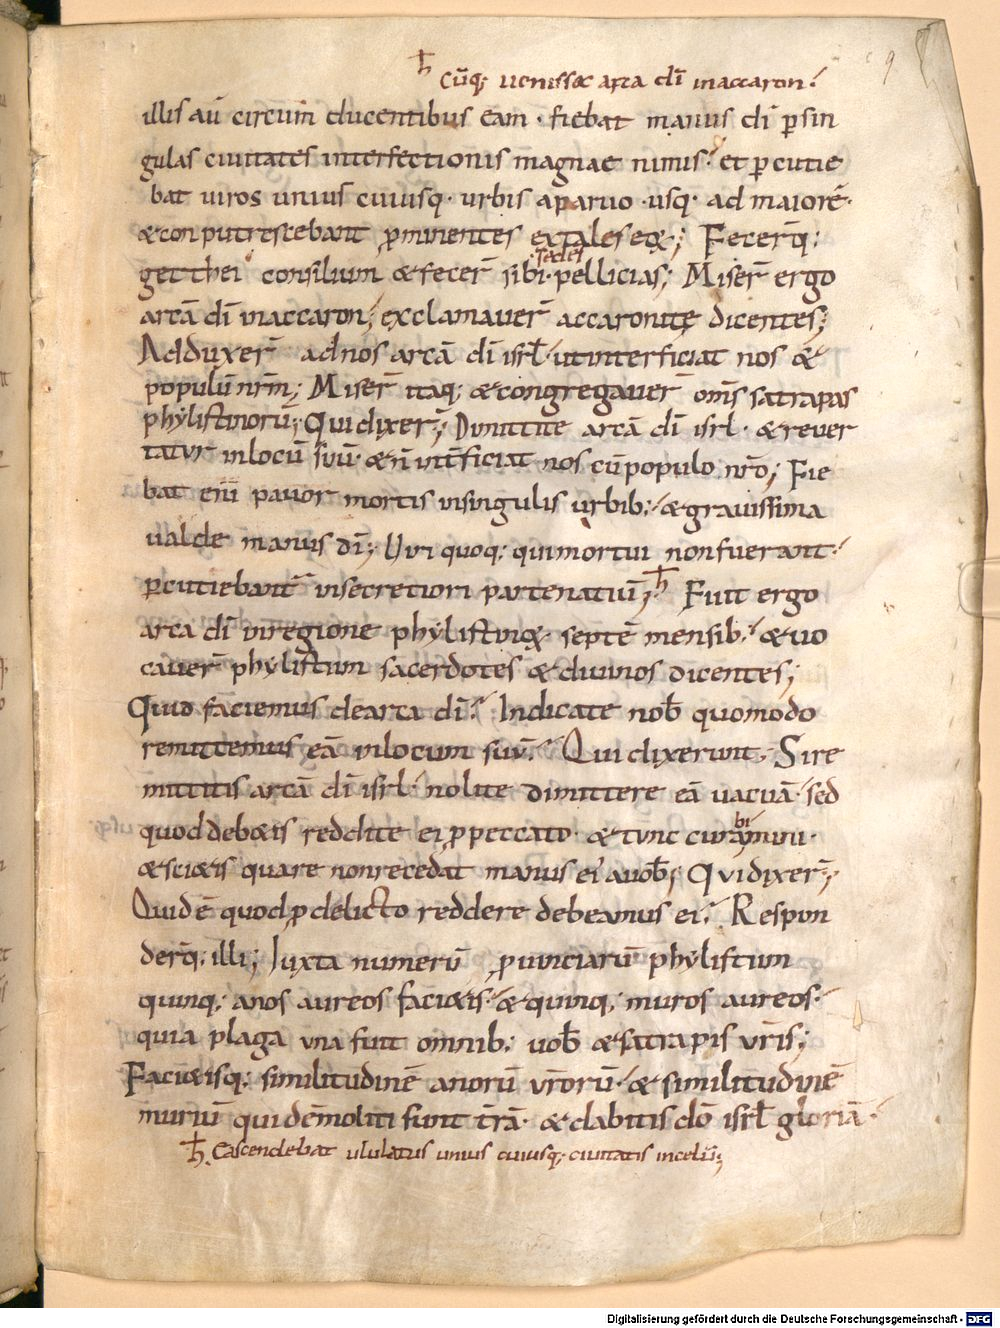 ħ Cūq; uenissꝫ arca dī inaccaron;
9
illis aū circum ducentibus eam · fiebat manus dī ꝑsin
gulas ciuitates interfectionis magnae nimis · et ꝑcutie
bat uiros unius cuiusq · urbis aparuo · usq · ad maiorē ·
&conputrescebant ꝓminentes extales eoꝝ; Fecerq̄;
sedes
getthei consilium & fecer̄ sibi · pellicias; Miser̄ ergo
arcā dī inaccaron; exclamauer̄ accaronitę dicentes;
Adduxer̄ adnos arcā dī isrl̄ · utinterficiat nos &
populū nrm̄; Miser̄ itaq; & congregauer̄ om̄s satrapas
phylistinorū; Qui dixer̄; Dimittite arcā dī isrl̄ · & reuer
tatur inlocū suū · & n̄ int̄ficiat nos cū populo nr̄o; Fie
bat enī pauor mortis insingulis urbib; & grauissima
ualde manus dī; Uiri quoq; quimortui nonfuerant ·
ꝑcutiebant̄ insecretiori partenatiū; ħ Fuit ergo
arca dī inregione phylistinoꝝ septē mensib; & uo
cauer̄ phylistiim sacerdotes & diuinos dicentes;
Quid faciemus dearca dī; Indicate nob̄ quomodo
remittemus eā inlocum suū; Qui dixerunt · Si re
mittitis arcā dī isrl̄ · nolite dimittere eā uacuā · sed
bi
quod deb&is reddite ei ꝓpeccato · & tunc curamini ·
& sci&is quare nonrecedat manus ei' auob̄; Qui dixer̄;
Quid ē quod ꝓdelicto reddere debeamus ei; Respon
derq̄; illi; Iuxta numerū ꝓuinciarū phylistiim
quinq; anos aureos faci&is · & quinq; mures aureos ·
quia plaga una fuit omnib; uob̄ & satrapis ur̄is;
Faci&isq; similitudinē anorū ur̄orū · & similitudinē
muriū qui dēmoliti sunt tr̄ā · & dabitis dō isrl̄ gloriā ·
ħ. Eascendebat ululatus unius cuiusq; ciuitatis incelū;
Digitalisierung gefördert durch die Deutsche Forschungsgemeinschaft - DFG